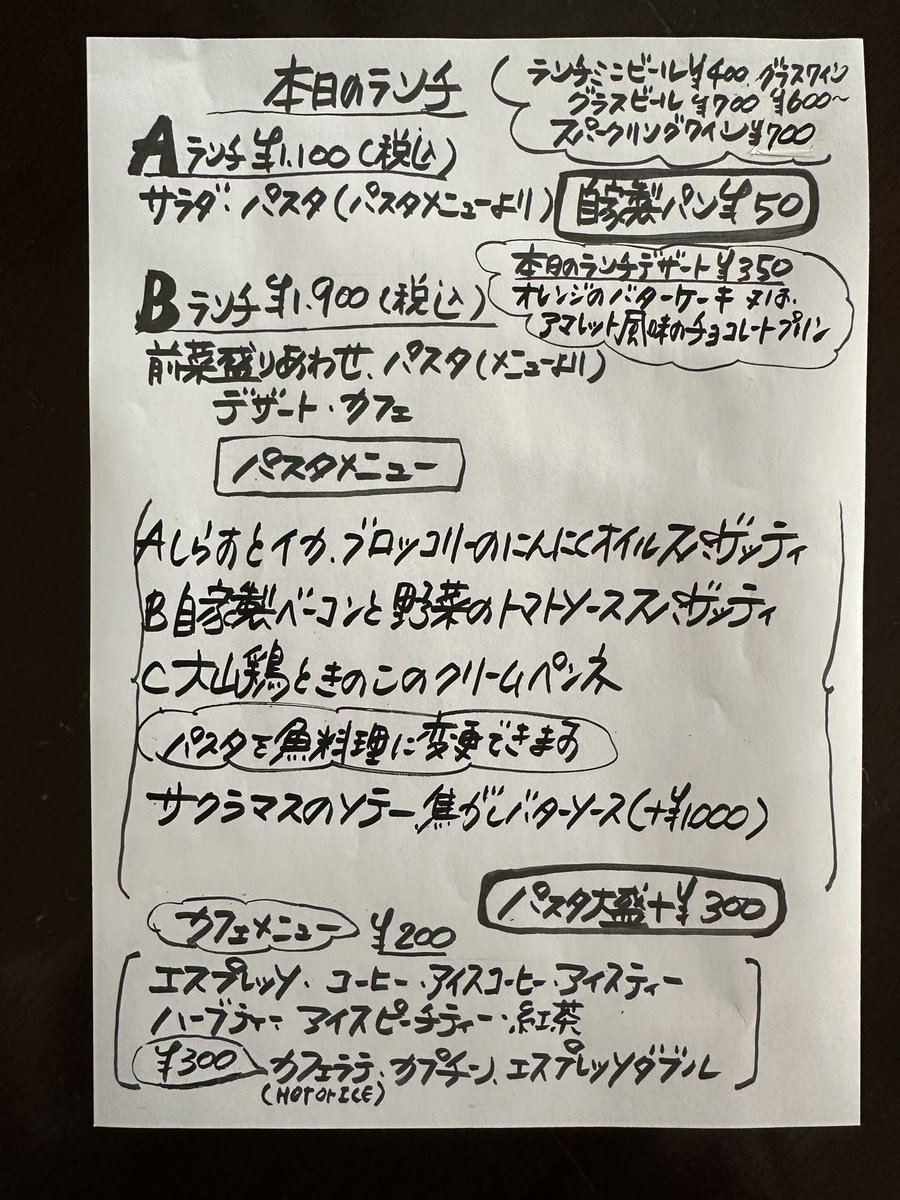 本日のランチ
ランチミニビール¥400 グラスワイン
グラスビール¥700 ¥600～
スパークリングワイン¥700
Aランチ¥1.100(税込)
サラダ・パスタ(パスタメニューより)
自家製パン¥50
本日のランチデザート¥350
オレンジのバターケーキ 又は、
アマレット風味のチョコレートプリン
Bランチ¥1.900(税込)
前菜盛りあわせ、パスタ(メニューより)
デザート・カフェ
パスタメニュー
Aしらすとイカ、ブロッコリーのにんにくオイルスパゲッティ
B自家製ベーコンと野菜のトマトソーススパゲッティ
C大山鶏ときのこのクリームペンネ
パスタを魚料理に変更できます
サクラマスのソテー、焦がしバターソース(+¥1.000)
パスタ大盛+¥300
カフェメニュー ¥200
エスプレッソ・コーヒー・アイスコーヒー・アイスティー
ハーブティー・アイスピーチティー・紅茶
¥300 カフェラテ・カプチーノ、エスプレッソダブル
(HOTorICE)